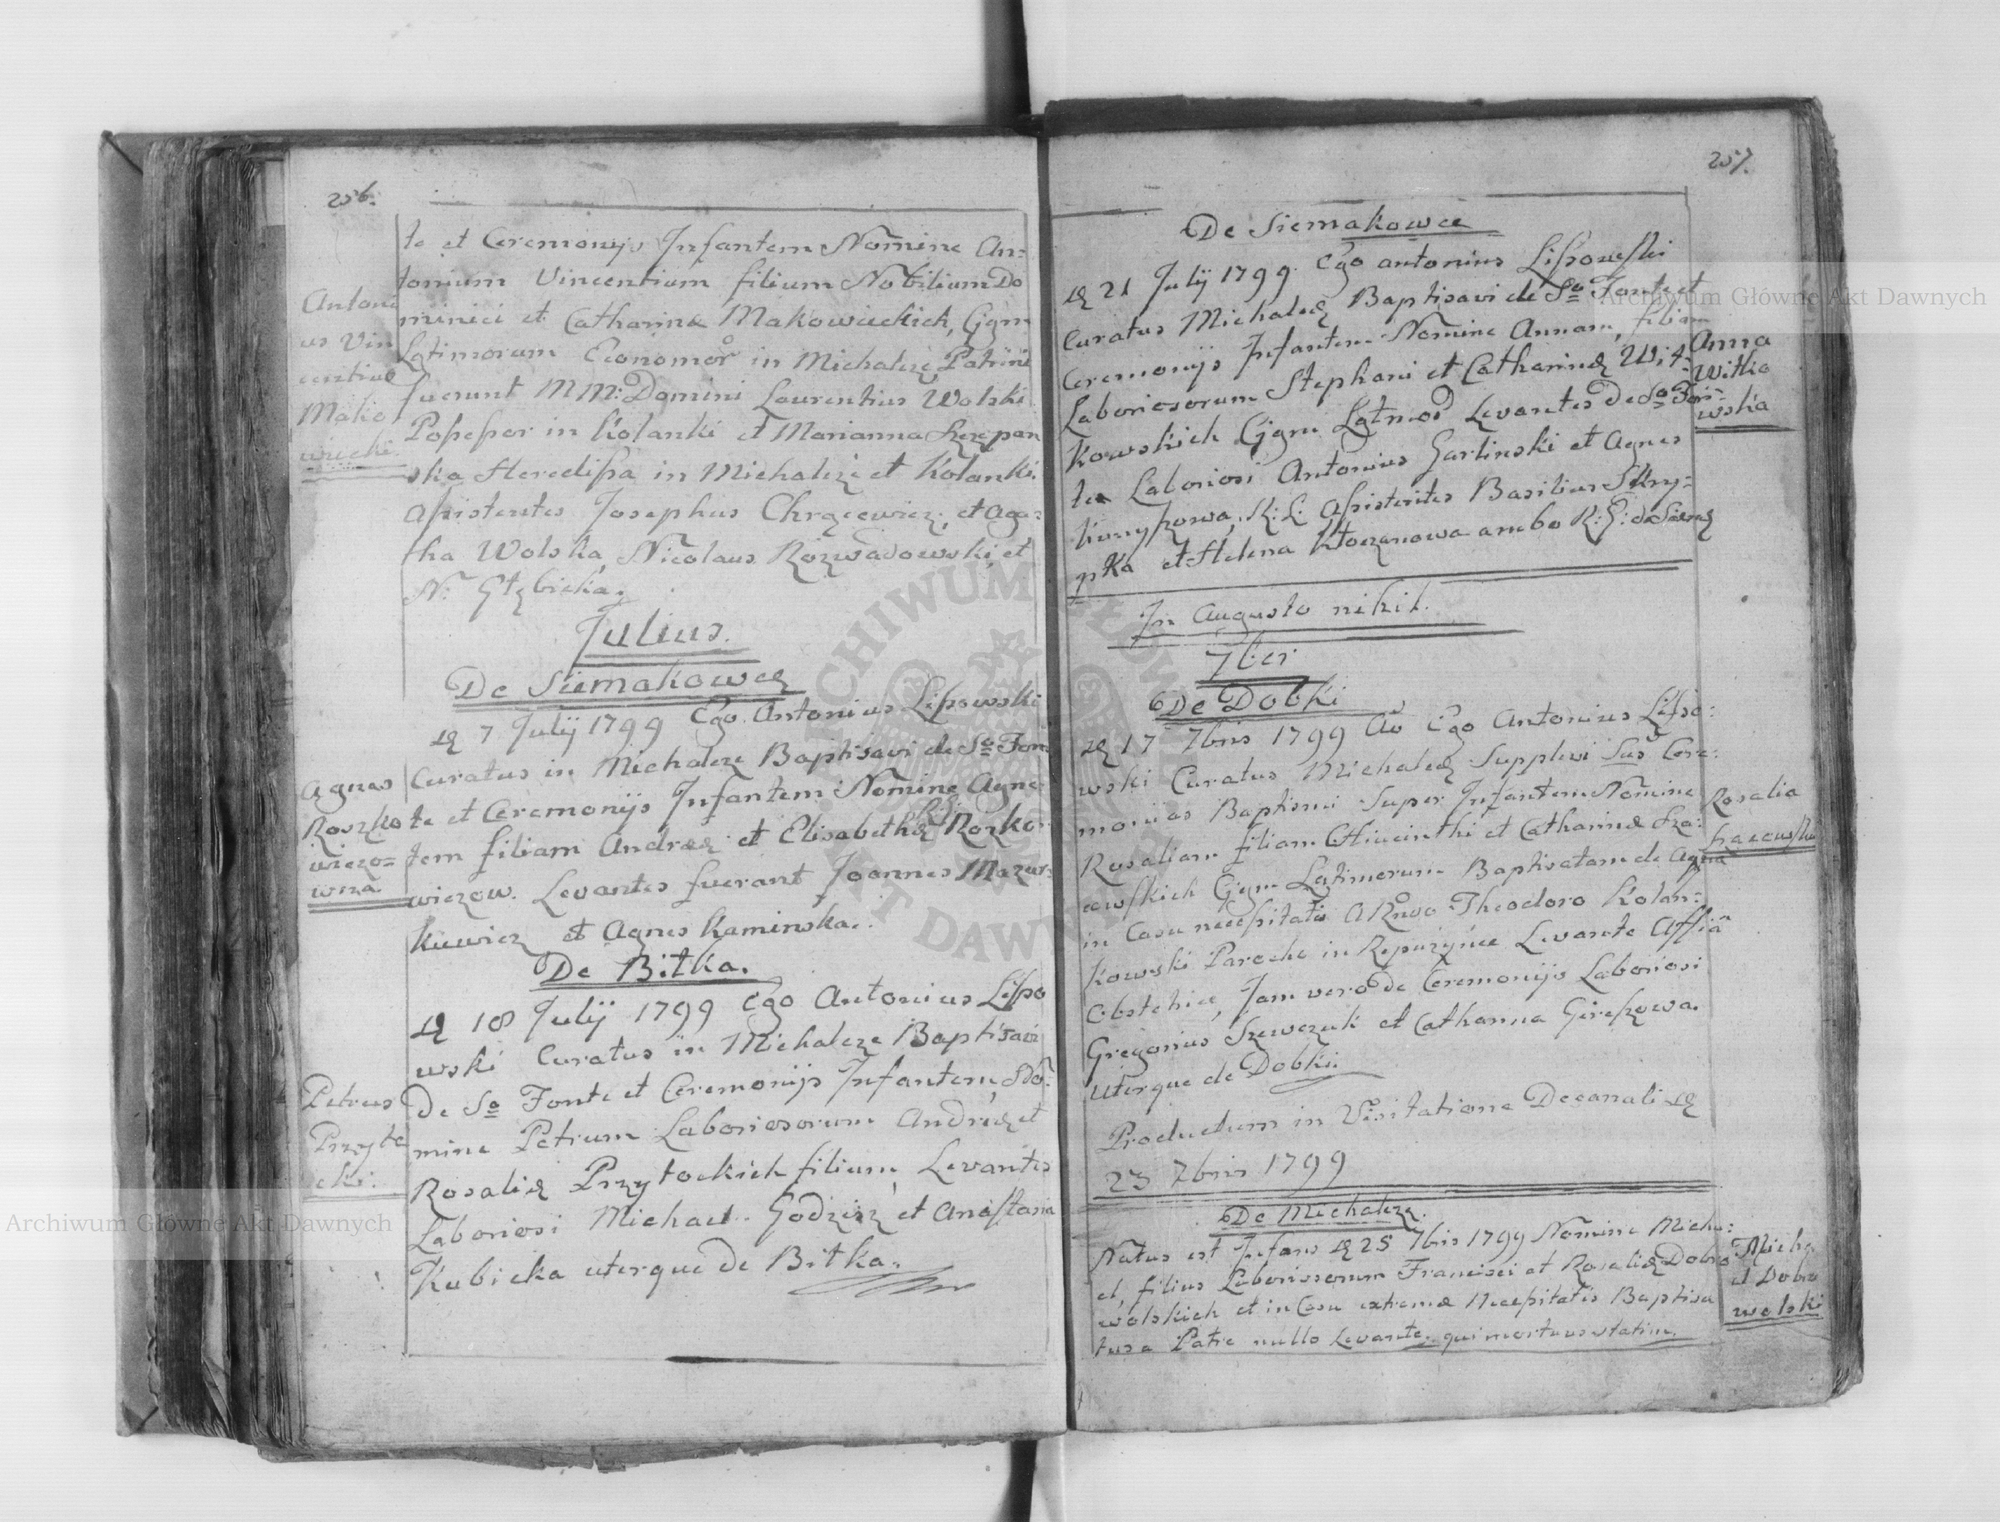 256.
te et Ceremonijs Infantem Nomine An=
tonium Vincentium filium Nobilium Do
minici et Catharinæ Makowieckich, Cjgm
Lgtimorum Economor in Michalcze, Patrini
fuerunt MM: Domini Laurentius Wolski
Possessor in Kolanki et Marianna Szczepan
ska Heredissa in Michalcze et Kolanki.
Assistentes Josephus Chrzcewicz, et Aga=
tha Wolska, Nicolaus Rozwadowski, et
N: Głębicka.
Antoni
us Vin
centius
Mako
wiecki.
Julius.
De Siemakowce
7 Julij 1799 Ego Antonius Lipowski
Curatus in Michalcze Baptisavi de So Fon
te et Ceremonijs Infantem Nomine Agne=
tem filiam Andreæ et Elisabethæ Rozko
wiczow. Levantes fuerant Joannes Mazur=
kiewicz et Agnes Kaminska.
Agnes
Roszko
wiczo=
wna
De Bitka.
18 Julij 1799 Ego Antonius Lipo
wski Curatus in Michalcze Baptisavi
de So Fonte et Ceremonijs Infantem No=
mine Petrum Laboriosorum Andreæ et
Rosaliæ Przytockich filium, Levantes
Laboriosi Michael Godzisz et Anastasia
Kubicka uterque de Bitka.
Petrus
Przyto
cki.
257.
De Siemakowce
21 Julij 1799. Ego Antonius Lipowski
Curatus Michalcze Baptisavi de So Fonte et
Ceremonijs Infantem Nomine Annam, filiam
Laboriosorum Stephani et Catharinæ Wit=
kowskich Cjgm Lgtmor Levantes de So Fon=
te Laboriosi Antonius Garlinski et Agnes
R: L: Assistentes Basilius Skry=
pka et Helena Kłoczanowa ambo R: G: de Siem
Anna
Witko
wska
In Augusto nihil.
7ber
De Dobki
17 7bris 1799 Ao Ego Antonius Lipo=
wski Curatus Michalcze Supplevi Sas Cere=
monias Baptismi Super Infantem Nomine
Rosaliam filiam Hiacinthi et Catharinæ Sza=
cewskich Cjgm Lgtimorum Baptisatam de Aqua
in Casu necessitatis a Rndo Theodoro Kolan=
kowski Parocho in Repużyńce Levante Assia
Obstetrice, Jam vero de Ceremonijs Laboriosi
Gregorius Szewczuk et Catharina
uterque de Dobki.
Rosalia
Productum in Visitatione Decanali
23 7bris 1799
De Michalcze.
Natus est Infans 25 7bris 1799 Nomine Micha=
el, filius Laboriosorum Francisci et Rosaliæ Dobro
wolskich et in Casu extremæ Necessitatis Baptisa
tus a Patre nullo Levante, qui mortuus statim.
Micha
el Dobro
wolski
Archiwum Główne Akt Dawnych
Archiwum Główne Akt Dawnych